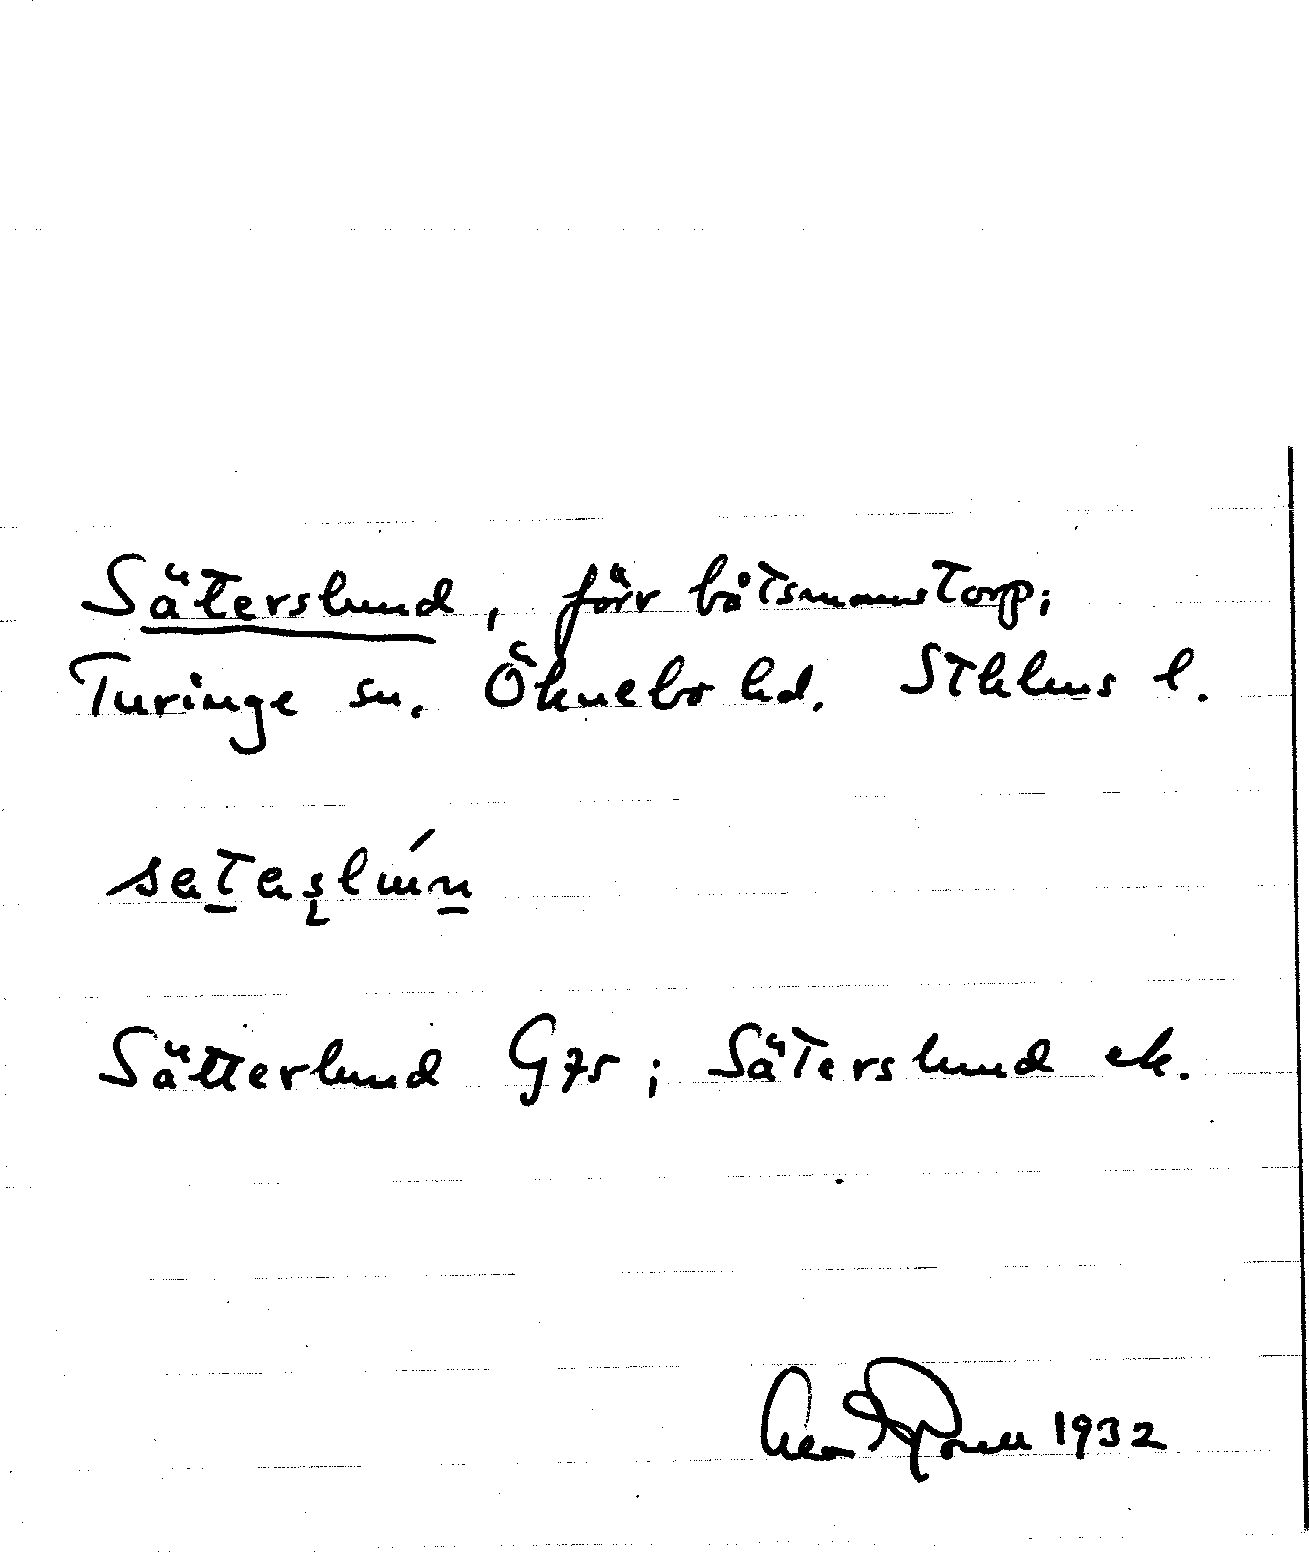 Säterslund, förr båtsmanstorp;
Turinge sn. Öknebo hd. Sthlms l.
satașlún
Sätterlund G75; Säterslund ek.
1932